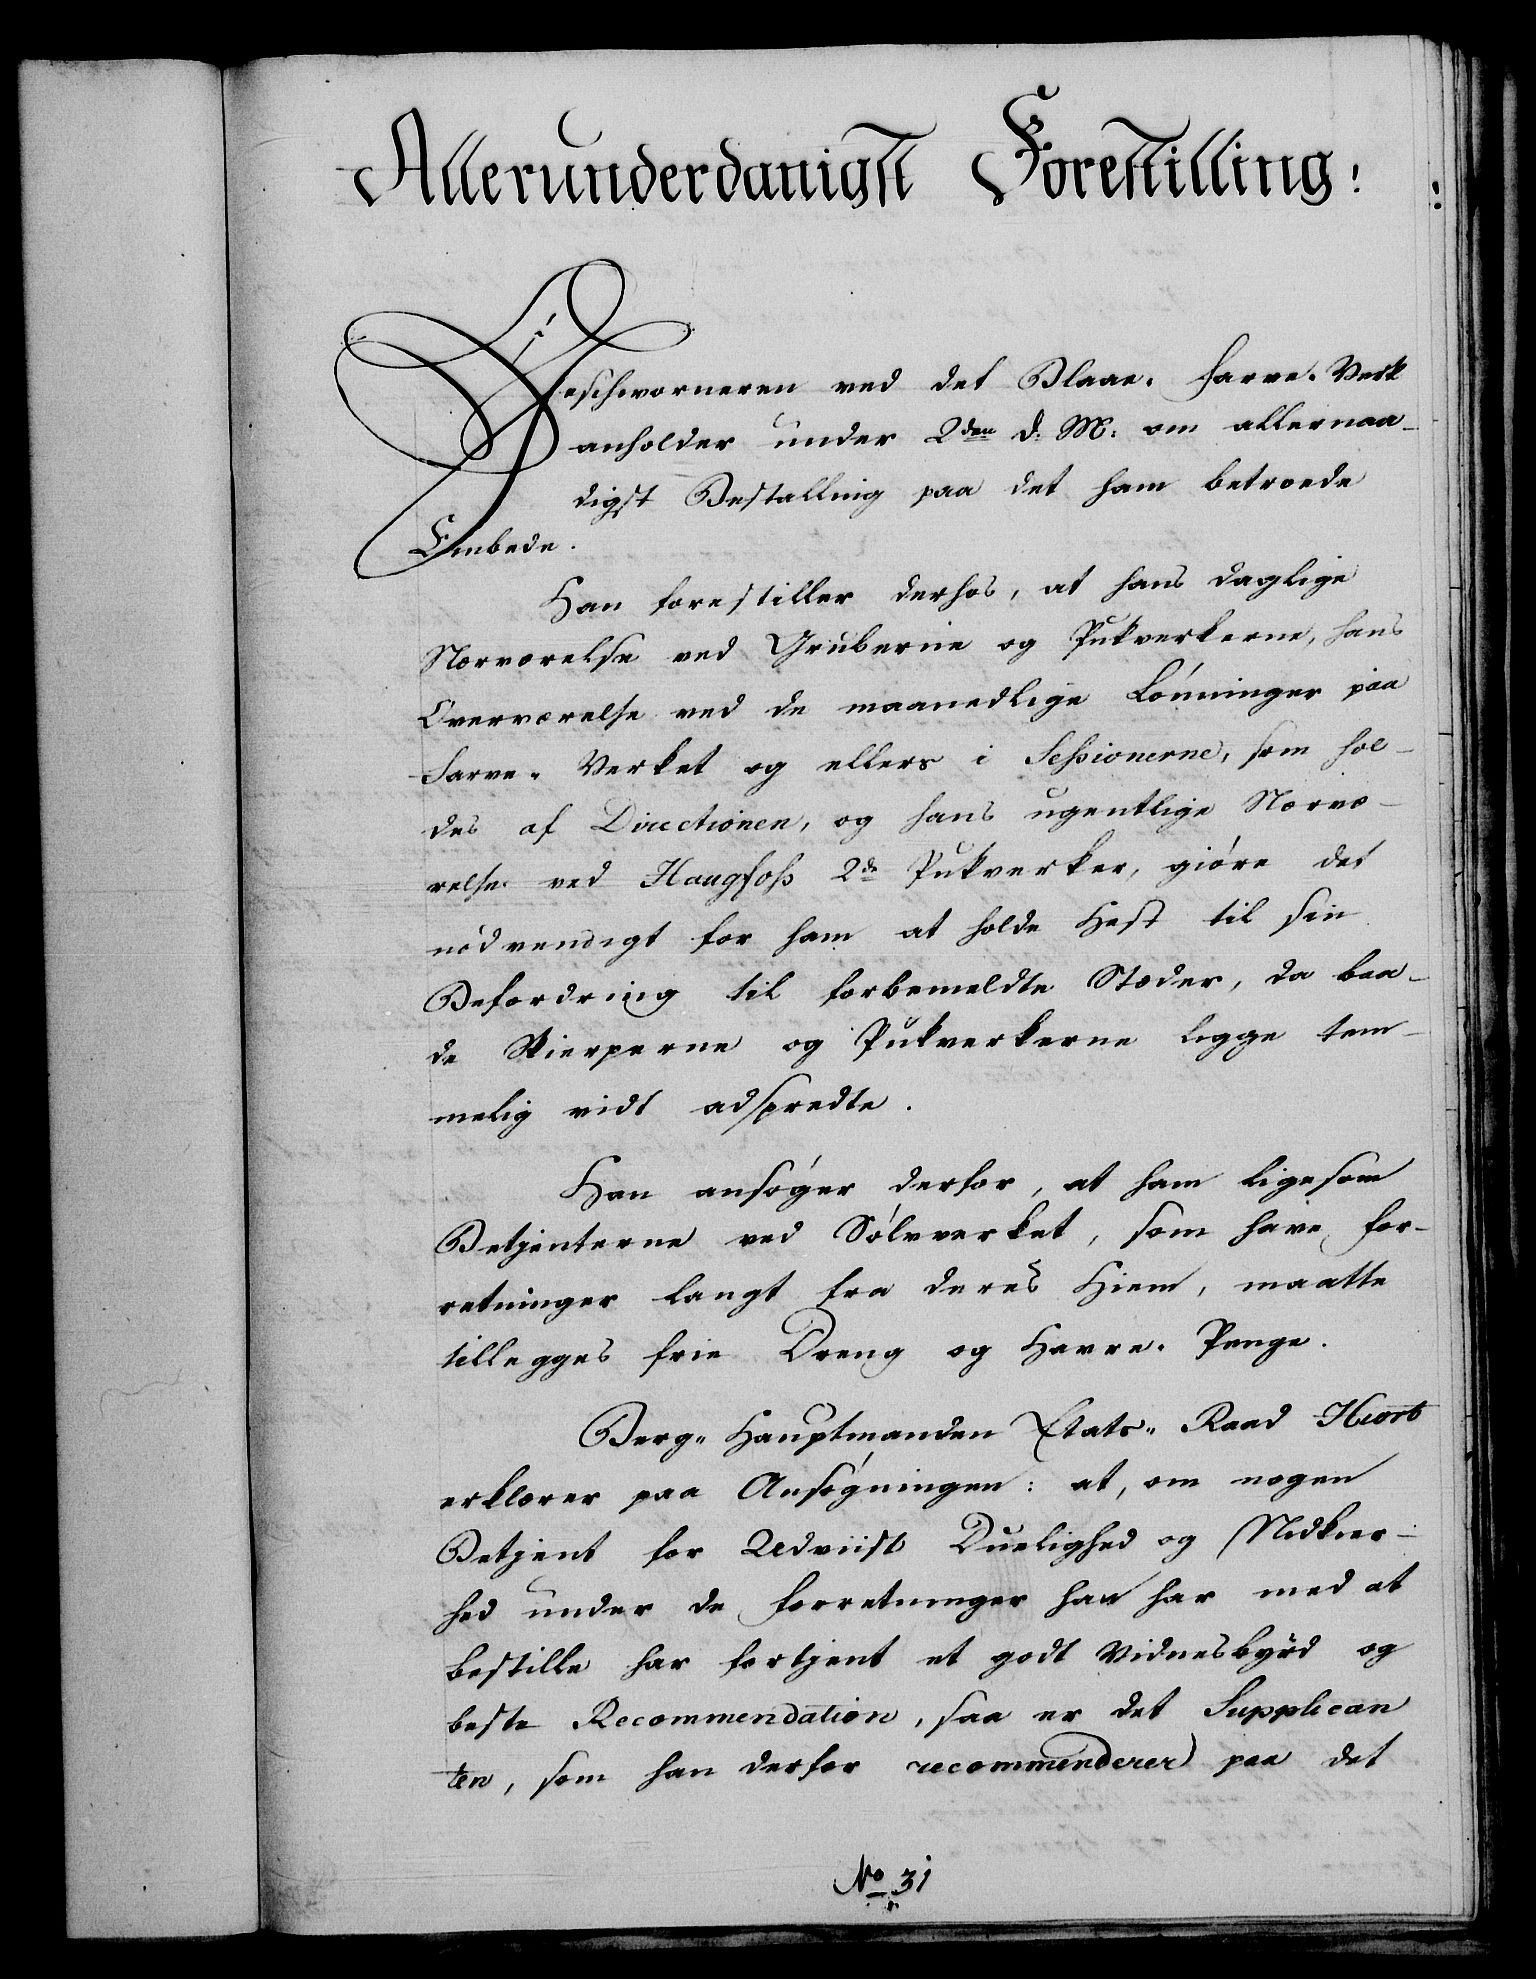 Allerunderdanigst Forestilling:
Geschworneren ved det Blaae-Farve-Verk
anholder under 2den d: M: om allernaa-
digst Bestalling paa det ham betroede
Embede.
Han forestiller derhos, at hans daglige
Nærværelse ved Gruberne og Pukverkerne, hans
Overværelse ved de maanedlige Lønninger paa
Farve-Verket og ellers i Sessionerne, som hol-
des af Directionen, og hans ugentlige Nærvæ-
relse ved Haugfoss 2de Pukverker, giøre det
nødvendigt for ham at holde Hest til sin
Befordring til forbemeldte Stæder, da baa-
de Skierperne og Pukverkerne ligge tem-
melig vidt adspredte.
Han ansøger derfor, at ham ligesom
Betjenterne ved Sølvverket, som have for-
retninger langt fra deres Hiem, maatte
tillegges frie Dreng og Havre-Penge.
Berg-Hauptmanden Etats-Raad Hiort
erklærer paa Ansøgningen: at, om nogen
Betjent for Udviist Duelighed og Nidkier-
hed under de Forretninger han har med at
bestille har fortjent et godt Vidnesbyrd og
beste Recommendation, saa er det Supplican
ten, som han derfor recommenderer paa det
No 31